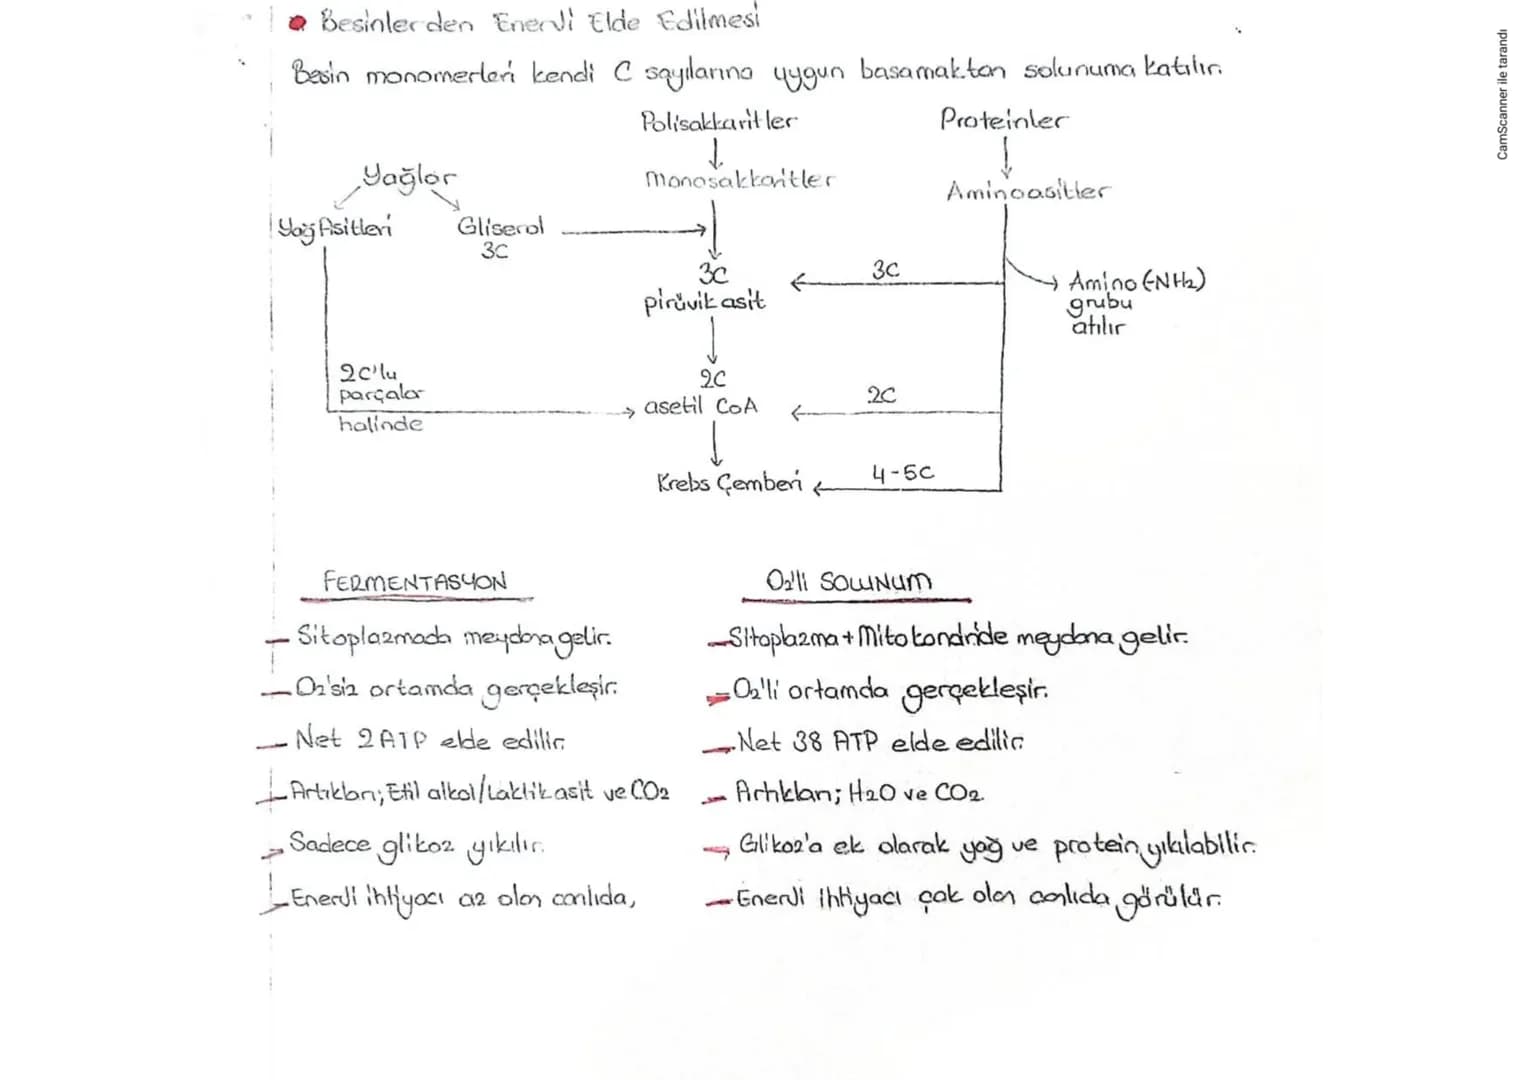 Besinlerden Enerji Elde Edilmesi
Besin monomerleri kendi C sayılarına uygun basamaktan solunuma katılır.
Polisakkaritler
Proteinler
Yağlar
Monosakkaritler
Aminoasitler
Yağ Asitleri
Gliserol
3C
3C
pirüvik asit
3C
Amino (-NH2)
grubu
atılır
2C'lu
parçalar
halinde
2C
asetil CoA
2C
Krebs Çemberi
4-5C
FERMENTASYON
- Sitoplazmada meydana gelir.
- O2'siz ortamda gerçekleşir.
- Net 2 ATP elde edilir.
- Artıkları; Etil alkol/Laktik asit ve CO2
- Sadece glikoz yıkılır.
- Enerji ihtiyacı az olan canlıda,
O2'li SOLUNUM
- Sitoplazma + Mitokondride meydana gelir.
- O2'li ortamda gerçekleşir.
- Net 38 ATP elde edilir.
- Artıkları; H2O ve CO2.
- Glikoz'a ek olarak yağ ve protein yıkılabilir.
- Enerji ihtiyacı çok olan canlıda görülür.
CamScanner ile tarandı